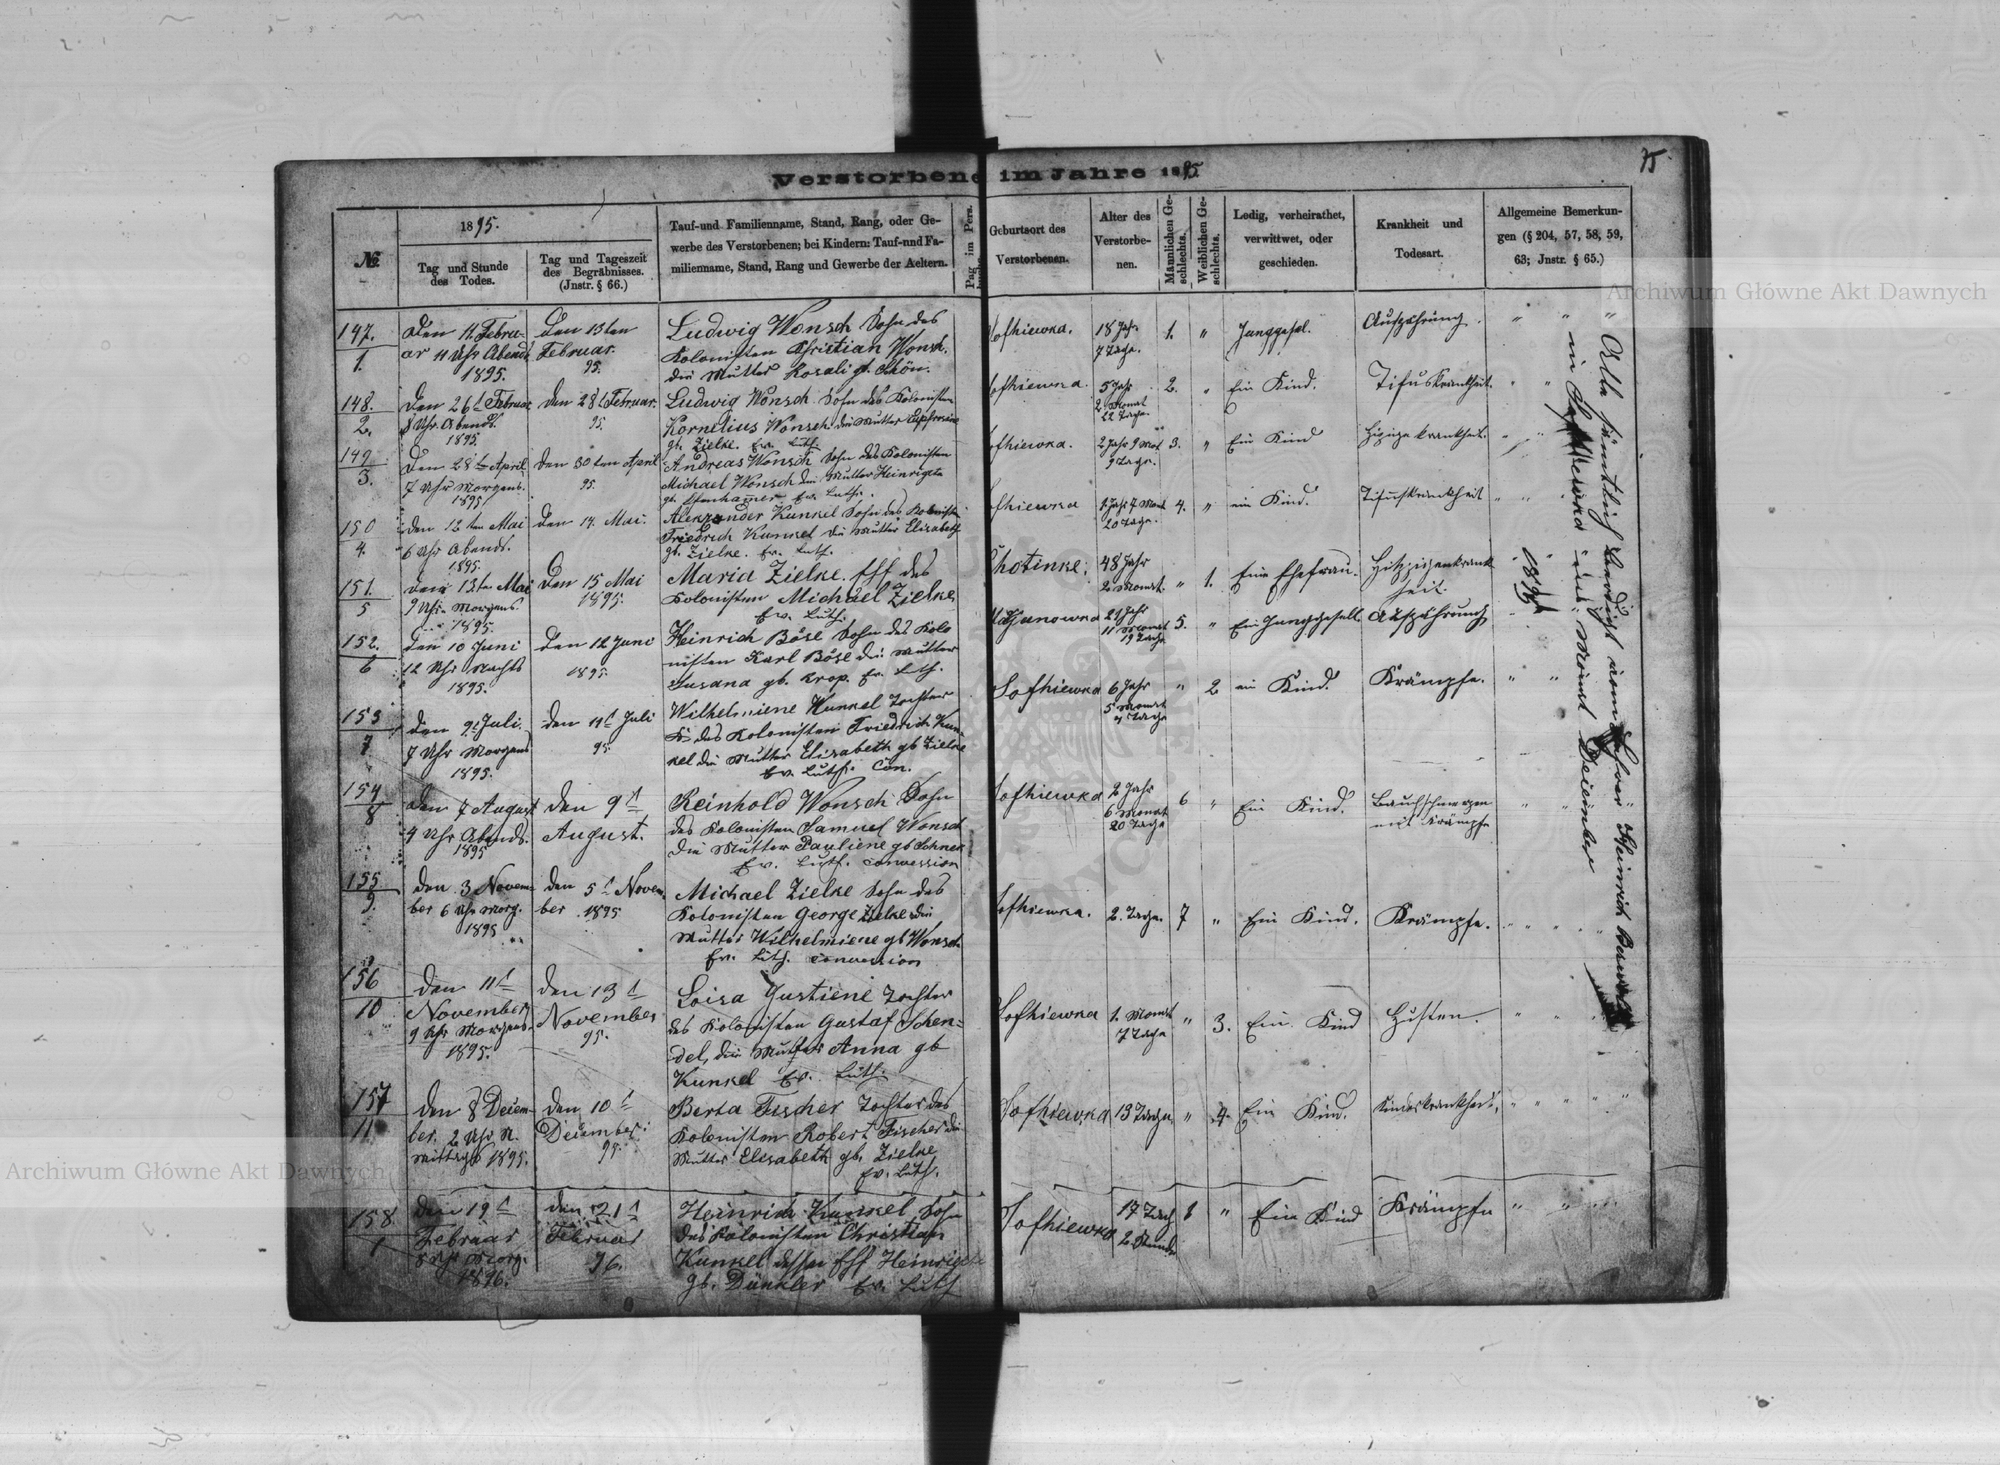 Verstorbene im Jahre 1895
75
№
1895.
Tag und Stunde
des Todes.
Tag und Tageszeit
des Begräbnisses.
(Jnstr. § 66.)
Tauf-und Familienname, Stand, Rang, oder Ge-
werbe des Verstorbenen; bei Kindern: Tauf-nnd Fa-
milienname, Stand, Rang und Gewerbe der Aeltern.
Pag im Pers.
Geburtsort des
Verstorbenen.
Alter des
Verstorbe-
nen.
Männlichen Ge-
schlechts.
Weiblichen Ge-
schlechts.
Ledig, verheirathet,
verwittwet, oder
geschieden.
Krankheit und
Todesart.
Allgemeine Bemerkun-
gen (§ 204, 57, 58, 59,
63; Jnstr. § 65.)
147.
1.
Den 11. Febru-
ar 11 Uhr Abends
1895.
Den 13ten
Februar.
95.
Ludwig Wonsch Sohn des
Kolonisten Christian Wonsch.
die Mutter Rosali gb. Schön.
Sofhiewka.
18 Jahr
7 Tage.
1.
"
Junggesel.
Auszehrung.
148.
2.
Den 26t Februar
8 Uhr Abends.
1895.
Den 28t Februar.
95.
Ludwig Wonsch Sohn des Kolonisten
Kornelius Wonsch die Mutter
gb. Zielke. Ev. Luth.
Sofhiewka.
5 Jahr
2 Monat
22 Tage.
2.
"
Ein Kind.
Tifuskrankheit.
149.
3.
Den 28ten April
7 Uhr Morgens.
1895
Den 30ten April
95.
Andreas Wonsch Sohn des Kolonisten
Michael Wonsch die Mutter
gb. Ev. Luth.
Sofhiewka.
2 Jahr 9 Mot
9 Tage.
3.
"
Ein Kind
150
4.
Den 12ten Mai
6 Uhr Abends.
1895.
Den 14. Mai.
Alexzander Kunkel Sohn des Kolonisten
Friedrich Kunkel die Mutter Elisabeth
gb. Zielke. Ev. Luth.
Sofhiewka
20 Tage.
4.
"
ein Kind.
Tifuskrankheit
151.
5
Den 13ten Mai
9 Uhr Morgens
1895.
Den 15 Mai
1895.
Maria Zielke. Eff des
Kolonisten Michael Zielke
Ev. Luth.
Chotinke.
48 Jahr
2 Monat.
"
1.
Eine Ehefrau.
152.
6
Den 10 Juni
12 Uhr Nachts
1895.
Den 12 Juni
1895.
Heinrich Böse Sohn des Kolo
nisten Karl Böse die Mutter
Susana gb. Krop. Ev. Lth.
21 Jahr
11 Monat
19 Tage
5.
"
Ein Junggesell
Auszehrung
153
7
Den 9t Juli.
7 Uhr Morgens
1895.
Den 11t Juli
95.
Wilhelmiene Kunkel Tochter
des Kolonisten Friedrich Kun
kel die Mutter Elisabeth gb Zielke
Ev. Luth. Con.
Sofhiewka
6 Jahr
5 Monat
"
2
ein Kind.
Krämpfe.
154
8
Den 7 August
4 Uhr Abends.
1895
Den 9t
August.
Reinhold Wonsch Sohn
des Kolonisten Samuel Wonsch
die Mutter Pauliene gb
Ev. Luth. Convession
Sofhiewka
2 Jahr
6 Monat
20 Tage
6
"
Ein Kind.
Bauchschmerzen
mit Krämpfe
155
9.
Den 3 Novem-
ber 6 Uhr Morg.
1895
Den 5t Novem
ber 1895
Michael Zielke Sohn des
Kolonisten George Zielke die
Mutter Wilhelmiene gb Wonsch
Ev. Lith. Convession
Sofhiewka.
2. Tage.
7
"
Ein Kind.
Krämpfe.
156
10
Den 11t
November
9 Uhr Morgens.
1895.
Den 13t
November
95.
Loisa Justiene Tochter
des Kolonisten Gustaf Schen=
del, die Mutter Anna gb
Kunkel Ev. Luth.
Sofhiewka
1. Monat
7 Tage
"
3.
Ein Kind
Husten.
157
11.
Den 8 Decem-
ber. 2 Uhr N.
mittags 1895.
Den 10t
December.
95.
Berta Fischer Tochter des
Kolonisten Robert Fischer die
Mutter Elisabeth gb. Zielke
Ev. Luth.
Sofhiewka
13 Tage
"
4.
Ein Kind.
Kinderkrankheit.
158
1
Den 19t
Februar
8 Uhr Morg.
1896.
Den 21t
Februar
96.
Heinrich Kunkel, Sohn
des Kolonisten Christian
Kunkel dessen Eff
gb. Dünkler Ev. Luth
Sofhiewka
17 Tage
2 Stunde
1
"
Ein Kind
Krämpfe
Alle sämtlich beerdigt vom Lehrer Heinrich
in Sofhiewka den Monat December
1895
Archiwum Główne Akt Dawnych
Archiwum Główne Akt Dawnych